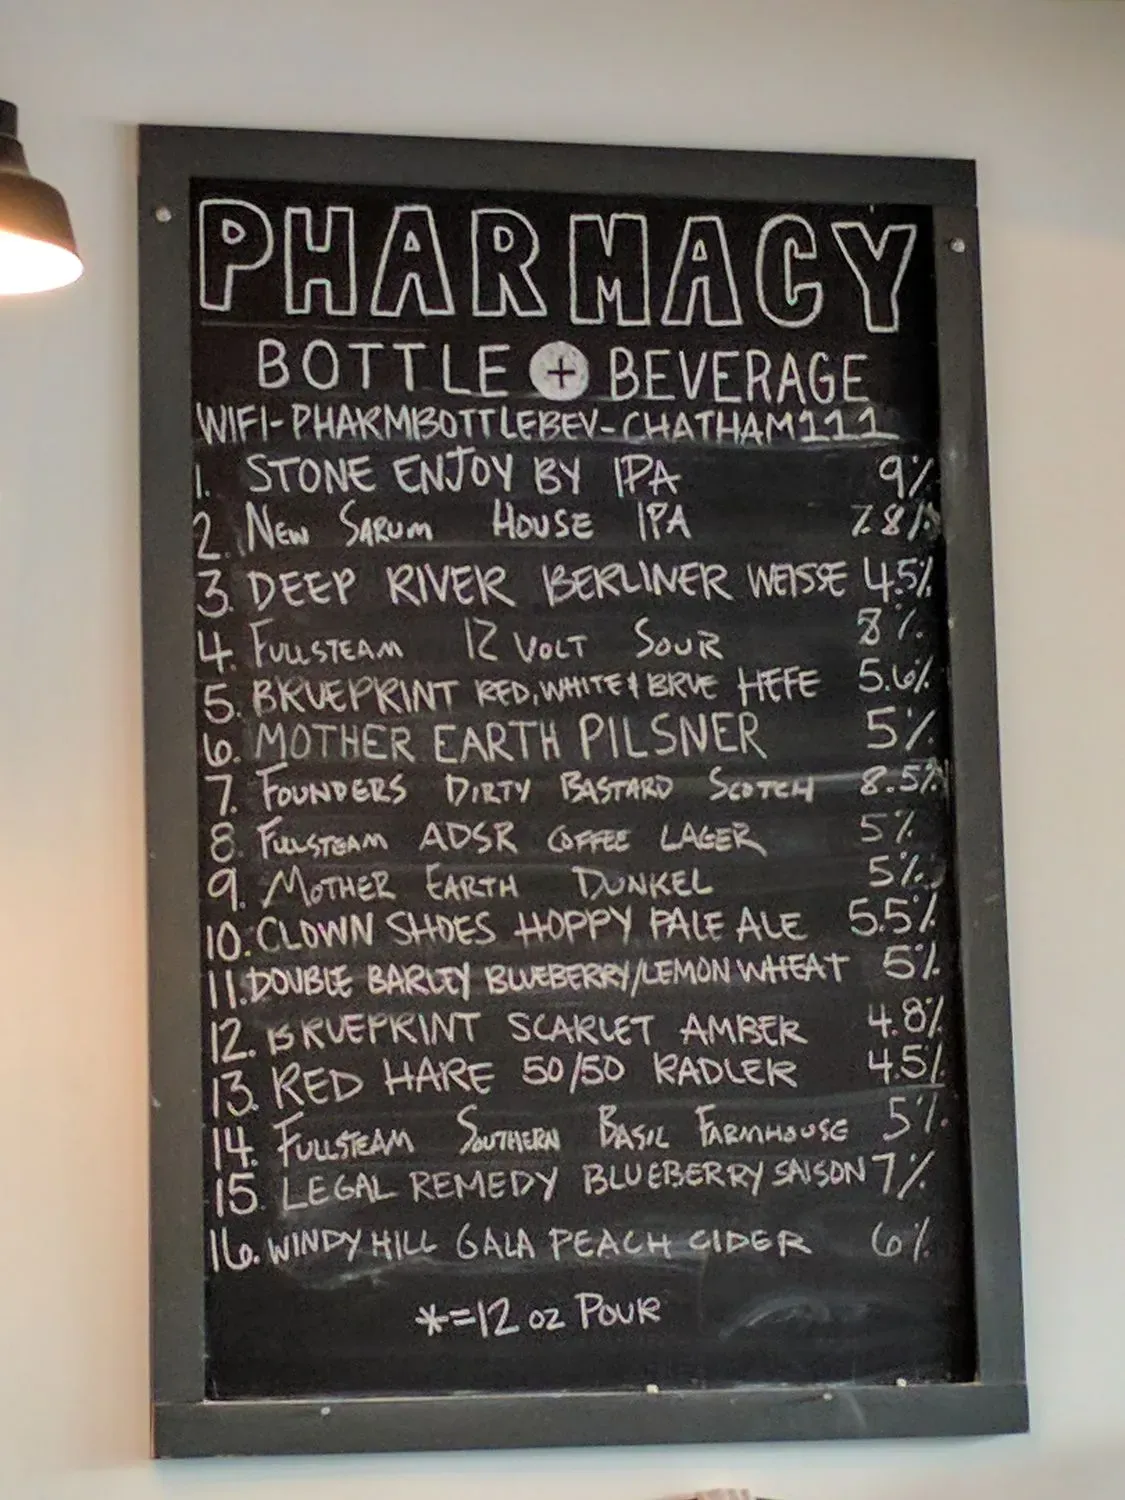 PHARMACY
BOTTLE + BEVERAGE
WIFI-PHARMBOTTLEBEV-CHATHAM111
1. STONE ENJOY BY IPA 9%
2. NEW SARUM HOUSE IPA 7.8%
3. DEEP RIVER BERLINER WEISSE 4.5%
4. FULLSTEAM 12 VOLT SOUR 8%
5. BRUEPRINT RED, WHITE & BRUE HEFE 5.6%
6. MOTHER EARTH PILSNER 5%
7. FOUNDERS DIRTY BASTARD SCOTCH 8.5%
8. FULLSTEAM ADSR COFFEE LAGER 5%
9. MOTHER EARTH DUNKEL 5%
10. CLOWN SHOES HOPPY PALE ALE 5.5%
11. DOUBLE BARLEY BLUEBERRY/LEMON WHEAT 5%
12. BRUEPRINT SCARLET AMBER 4.8%
13. RED HARE 50/50 RADLER 4.5%
14. FULLSTEAM SOUTHERN BASIL FARMHOUSE 5%
15. LEGAL REMEDY BLUEBERRY SAISON 7%
16. WINDY HILL GALA PEACH CIDER 6%
*=12 OZ POUR